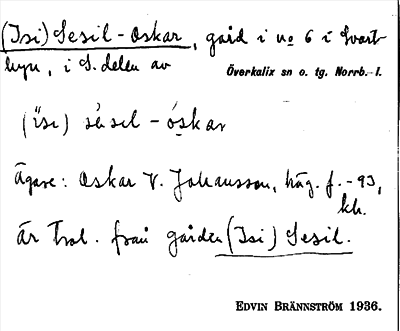 (Isi) Sesil-Oskar, gård i no 6 i Svart-
byn, i S. delen av
Överkalix sn o. tg. Norrb. l.
(ísi) sésil - óskar
Ägare: Oskar V. Johansson, häg. f. -93,
kh.
är trol. från gården (Isi) Sesil.
EDVIN BRÄNNSTRÖM 1936.